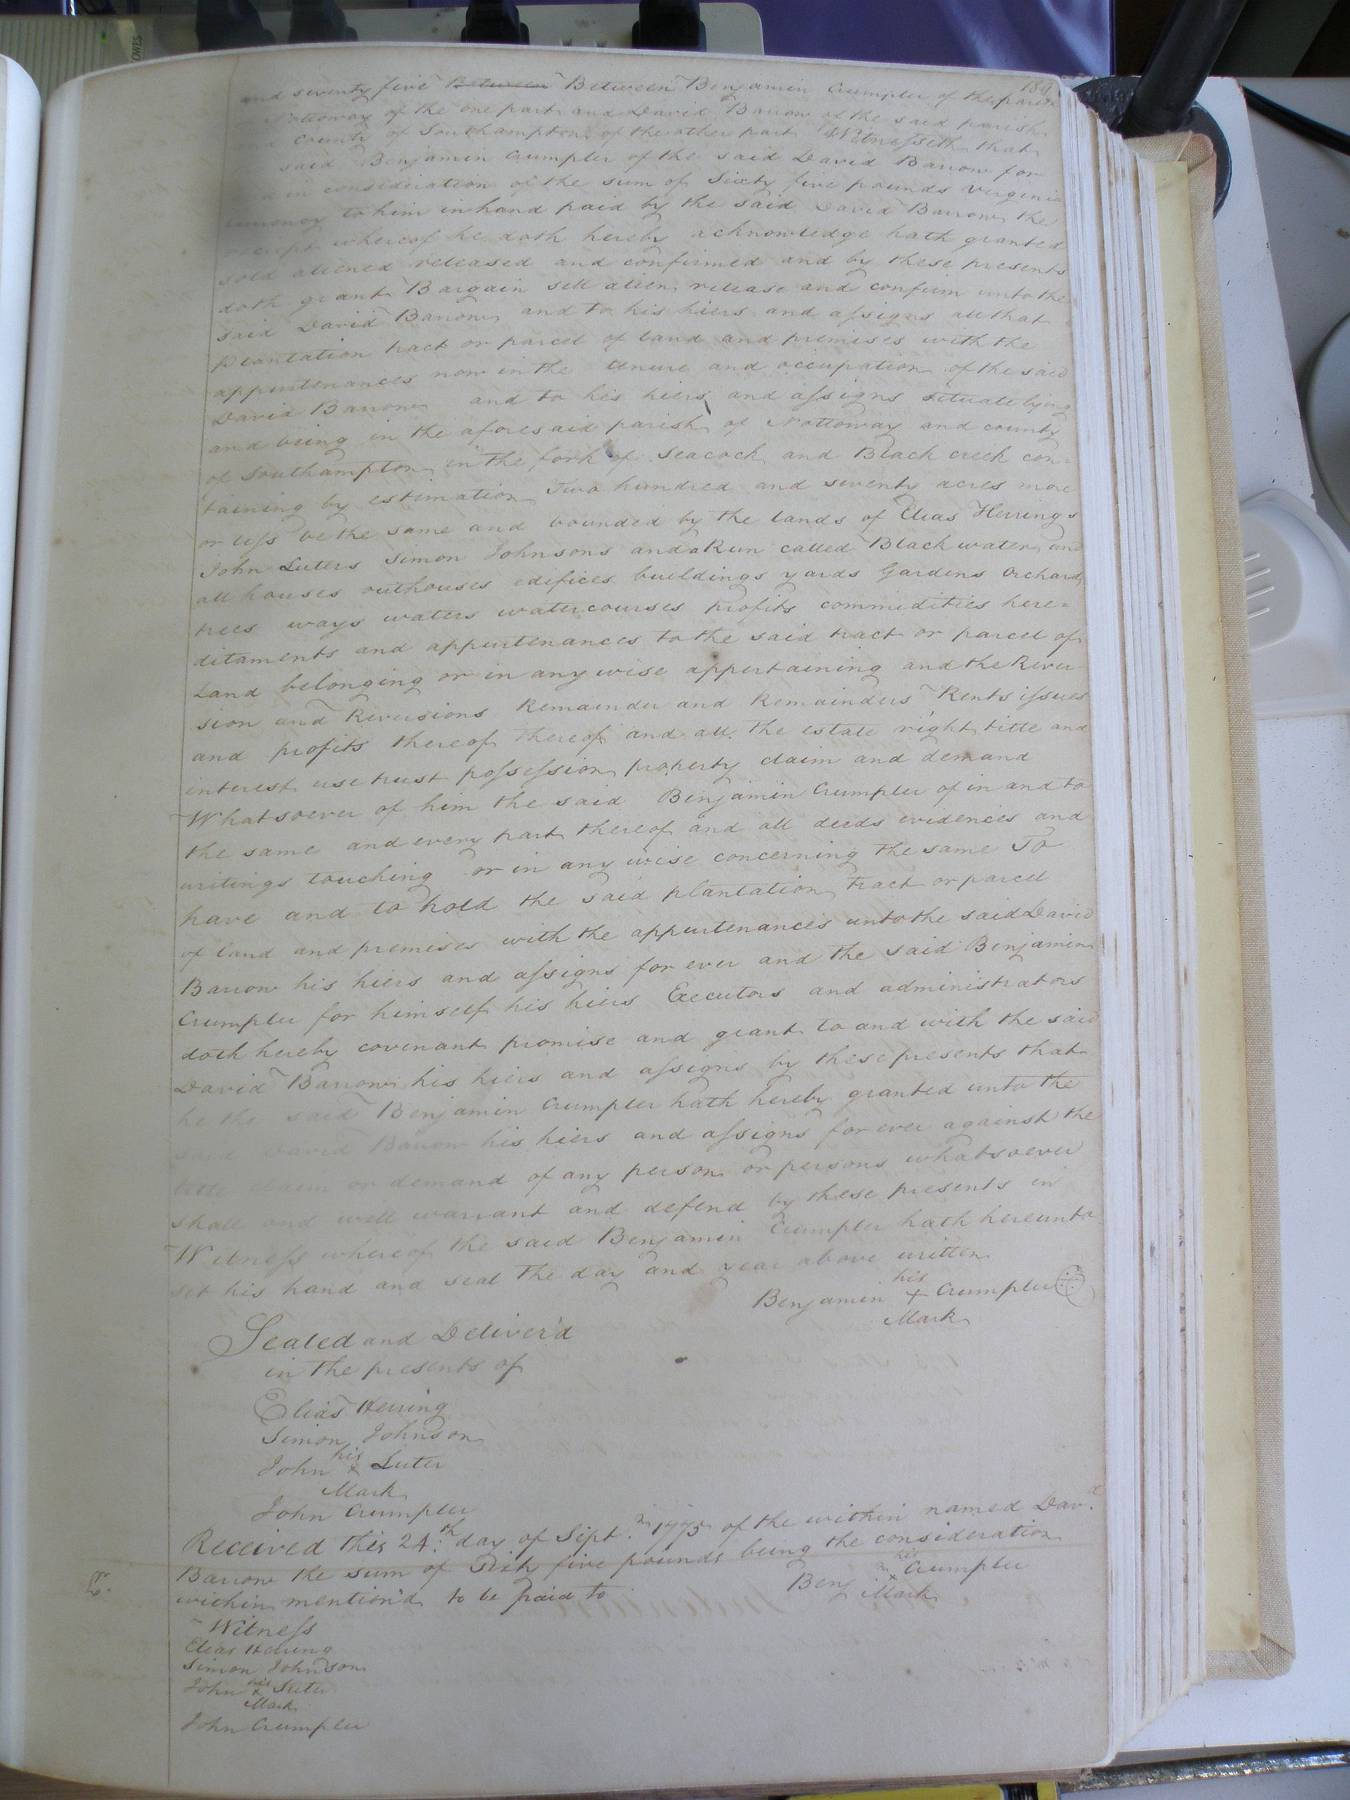 189
and seventy five Between Between Benjamin Crumpler of the parish
Nottoway of the one part and David Barrow of the said parish
& County of Southampton of the other part Witnesseth that
said Benjamin Crumpler of the said David Barrow for
and in consideration of the sum of Sixty five pounds Virginia
currency to him in hand paid by the said David Barrow the
receipt whereof he doth hereby acknowledge hath granted
sold aliened released and confirmed and by these presents
doth grant Bargain sell alien release and confirm unto the
said David Barrow and to his hiers and assigns all that
plantation tract or parcel of land and premises with the
appurtenances now in the tenure and occupation of the said
David Barrow and to his hiers and assigns situate lying
and being in the aforesaid parish of Nottoway and county
of Southampton in the fork of Seacock and Black creek con-
taining by estimation Two hundred and seventy acres more
or less be the same and bounded by the lands of Elias Herrings
John Luters Simon Johnsons and a Run called Black water and
all houses outhouses edifices buildings yards Gardens Orchards
trees ways waters watercourses profits commodities here-
ditaments and appurtenances to the said tract or parcel of
Land belonging or in any wise appertaining and the Rever
sion and Reversions Remainder and Remainders Rents issues
and profits thereof thereof and all the estate right title and
interest use trust possession property claim and demand
Whatsoever of him the said Benjamin Crumpler of in and to
the same and every part thereof and all deeds evidences and
writings touching or in any wise concerning the same To
have and to hold the said plantation tract or parcel
of land and premises with the appurtenances unto the said David
Barrow his hiers and assigns for ever and the said Benjamin
Crumpler for himself his hiers Executors and administrators
doth hereby covenant promise and grant to and with the said
David Barrow his hiers and assigns by these presents that
he the said Benjamin Crumpler hath hereby granted unto the
said David Barrow his hiers and assigns for ever against the
title claim or demand of any person or persons whatsoever
shall and will warrant and defend by these presents in
Witness whereof the said Benjamin Crumpler hath hereunto
set his hand and seal the day and year above written
his
Benjamin + Crumpler
Mark
Sealed and Deliver'd
in the presents of
Elias Herring
Simon Johnson
his
John x Luter
Mark
John Crumpler
Received this 24th day of Sept. 1775 of the within named Dav.d
Barrow the sum of Sixty five pounds being the consideration
within mention'd to be paid to
his
Benj.m x Crumpler
Mark
Witness
Elias Herring
Simon Johnson
his
John x Luter
Mark
John Crumpler